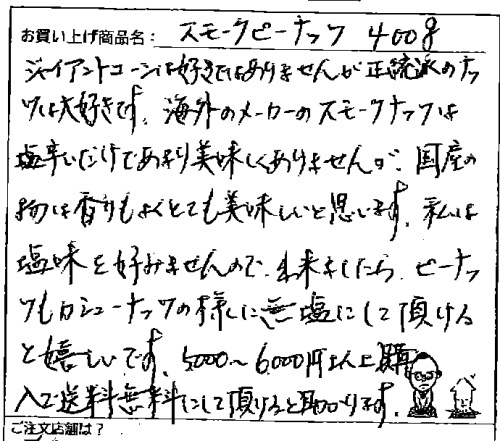 お買い上げ商品名: スモークピーナッツ 400g
ジャイアントコーンは好きではありませんが正統派のナッ
ツは大好きです。海外のメーカーのスモークナッツは
塩辛いだけであまり美味しくありませんが、国産の
物は香りもよくとても美味しいと思います。私は
塩味を好みませんので、出来ましたら、ピーナッ
ツもカシューナッツの様に無塩にして頂ける
と嬉しいです。5000〜6000円以上購
入で送料無料にして頂けると助かります。
ご注文店舗は?